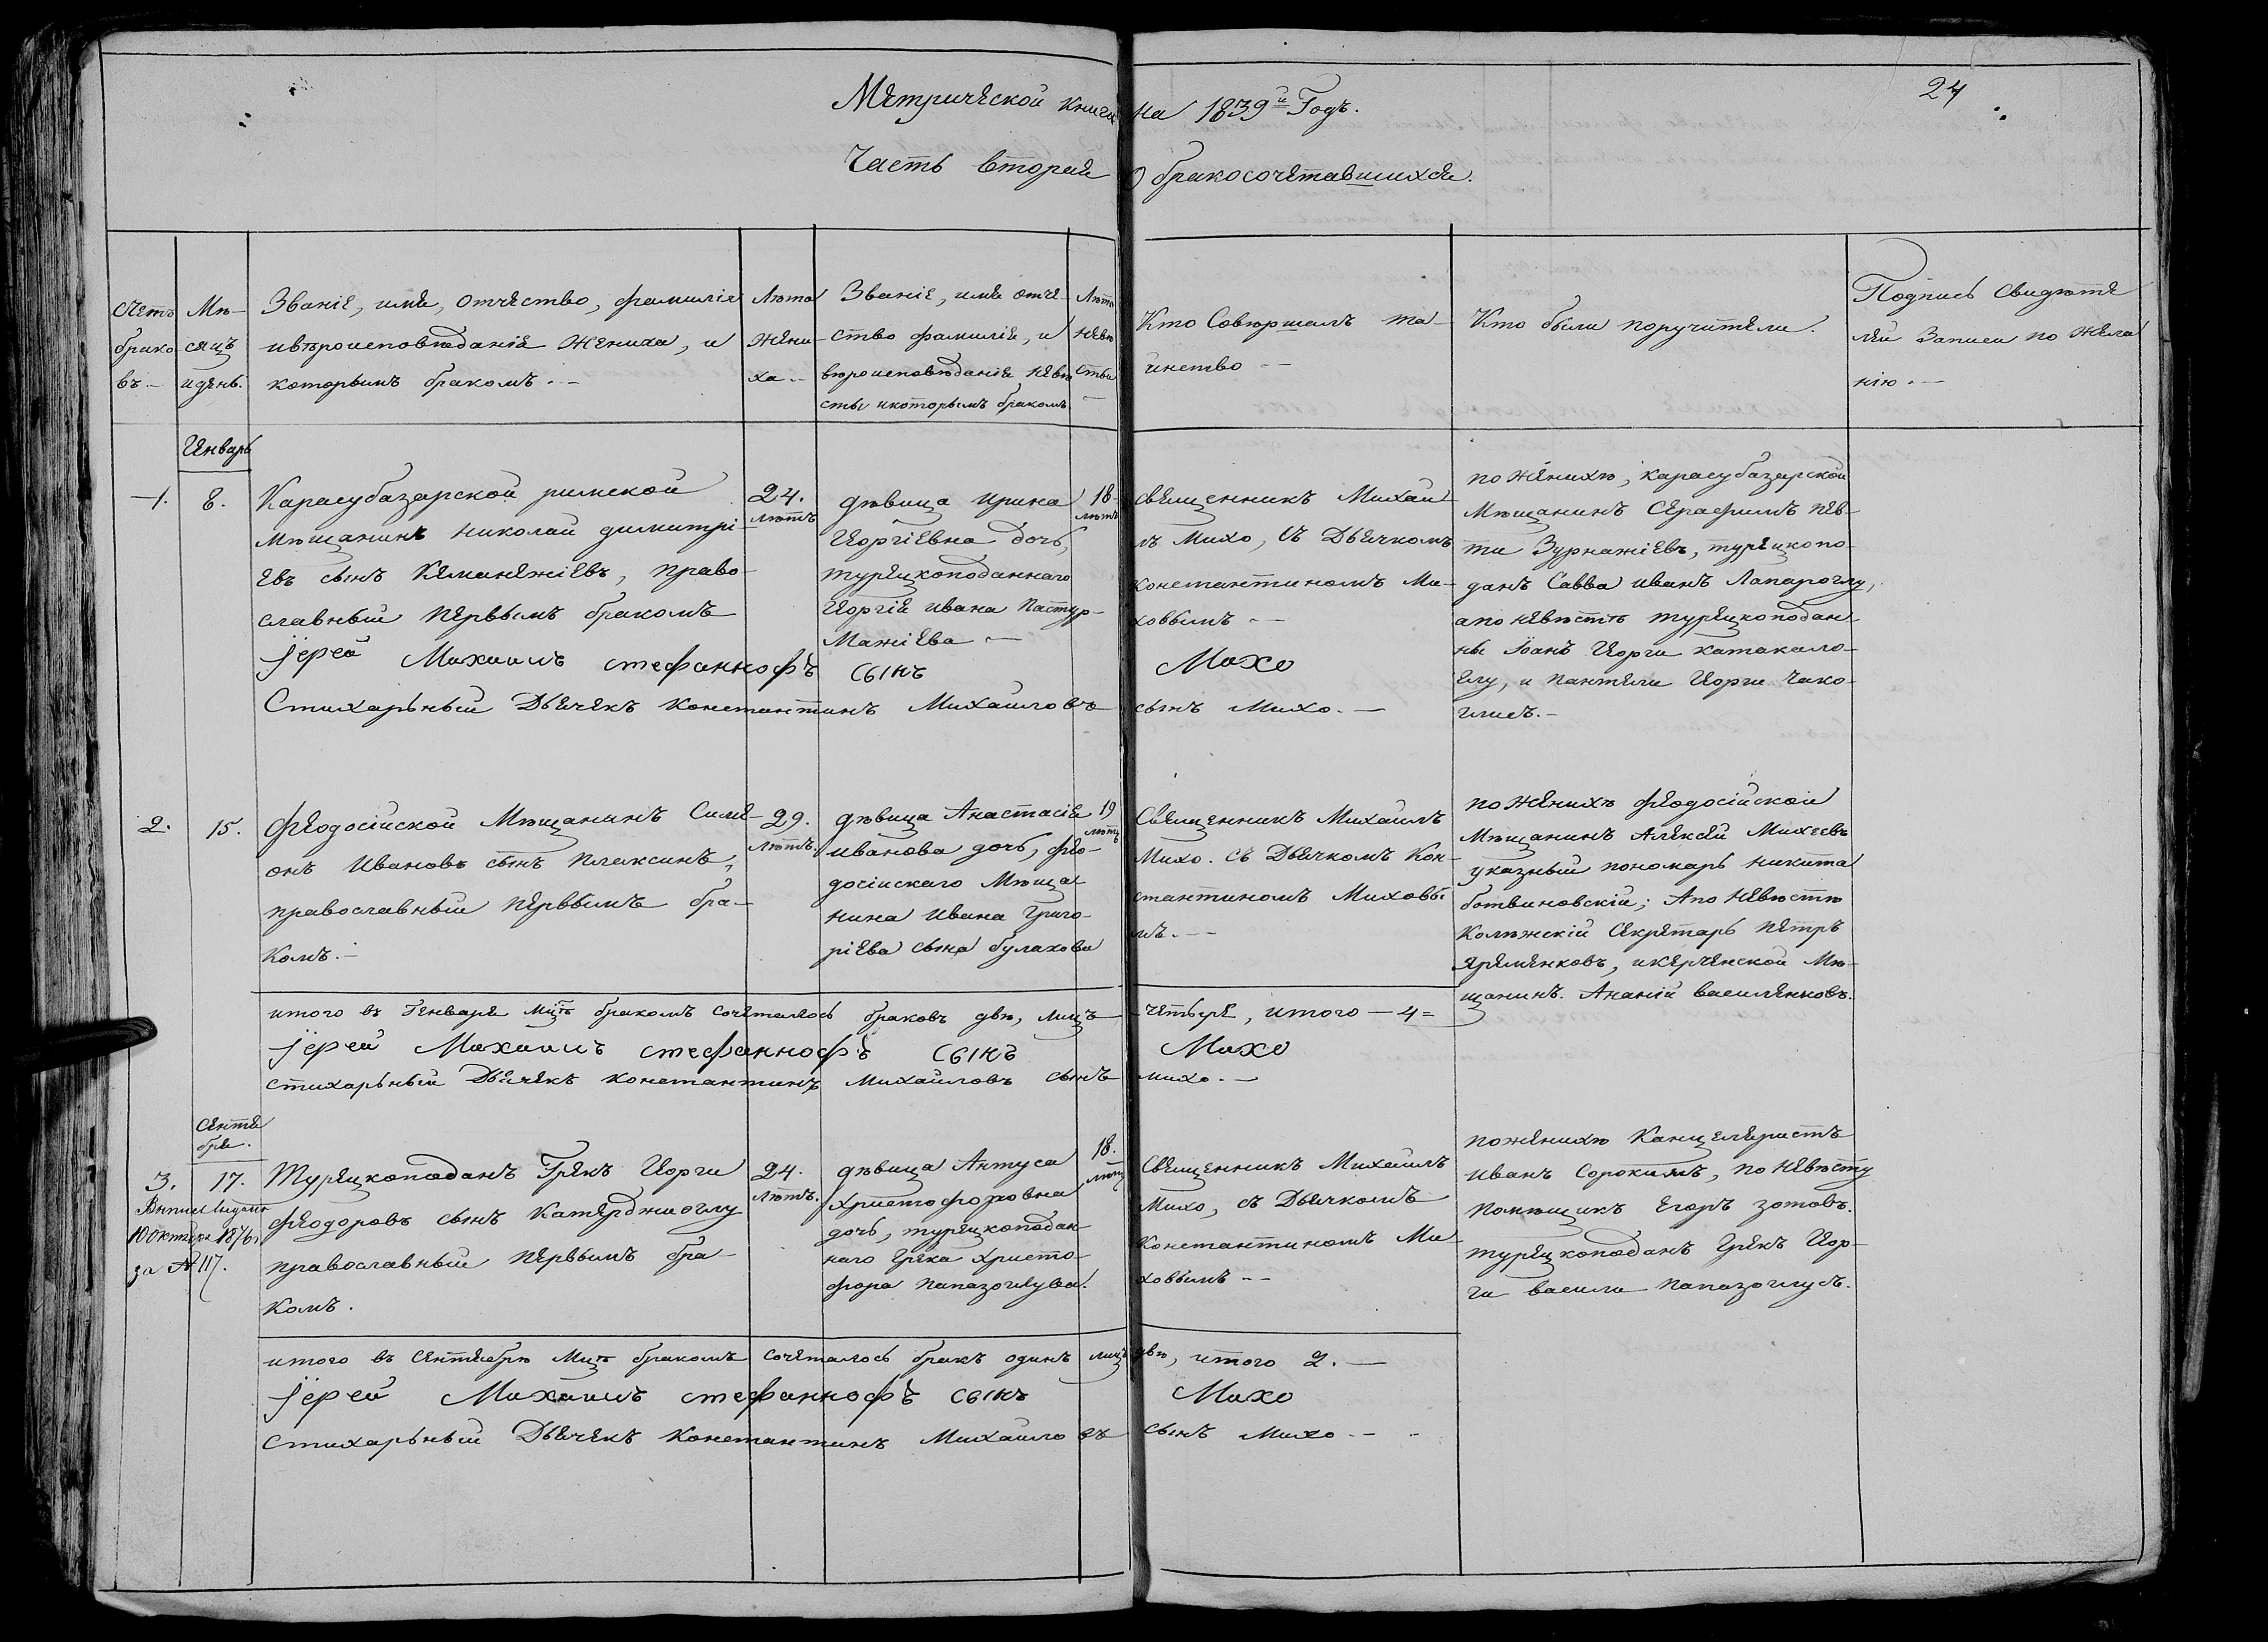 24
Метрической книги на 1839й Годъ.
Часть вторая О бракосочетавшихся.
Счетъ
брако
въ
Мѣ-
сяцъ
и день.
Званіе, имя, отчество, фамилія
и вѣроисповѣданіе жениха, и
которымъ бракомъ.
Лѣта
жени-
ха
Званіе, имя отче-
ство фамиліе, и
вѣроисповѣданіе невѣ
сты и которымъ бракомъ
Лѣта
невѣ
сты
Кто Совершалъ та-
инство
Кто были поручители.
Подпись Свидѣте
лей Записи по жела
нію.
Январь
1.
8.
Карасубазарской римской
мѣщанинъ николай димитрі-
евъ сынъ Кеманежіевъ, право-
славный первымъ бракомъ
24.
лѣтъ
дѣвица ирина
Георгіевна дочь,
турецкоподаннаго
Георгія ивана Пастур-
мажіева
18
лѣтъ
священникъ Михаи
лъ Михо, съ Дьячкомъ
константиномъ Ми-
ховымъ
по женихѣ, карасубазарской
Мѣщанинъ Серафимъ пев-
ти Зурнажіевъ, турецкопо-
данъ Савва иванъ Лапароглу,
а по невѣстѣ турецкоподан
ны Іоанъ Георги катакало-
глу, и пантели Георги Чако-
глисъ.
іерей Михаилъ стефаннофъ сынъ Михо
Стихарьный Дьячекъ константинъ Михайловъ сынъ Михо.
2.
15.
Феодосійской Мѣщанинъ Симе-
онъ Ивановъ сынъ плаксинъ,
православный первымъ бра-
комъ.
29.
лѣтъ.
дѣвица Анастасія
иванова дочь, фео-
досійскаго Мѣща-
нина ивана Григо-
ріева сына булахова
19
лѣтъ
Священникъ Михаилъ
Михо. съ Дьячкомъ Кон-
стантиномъ Миховы
мъ.
по женихѣ феодосійской
Мѣщанинъ Алексѣй Михеевъ
указный пономарь никита
ботвиновскій; А по невѣстѣ
Колѣжскій Секретарь петръ
яременковъ, и керченской Мѣ-
щанинъ. Ананій василенковъ.
итого въ Генваря мцѣ бракомъ сочеталось браковъ двѣ, лицъ четыре, итого — 4 =
іерей Михаилъ стефаннофъ сынъ Михо
стихарьный Дьячекъ константинъ михайловъ сынъ михо.
Сентя
бря.
3.
17.
Выписъ выдано
10 октября 1876 г
за № 117.
Турецкоподанъ Грекъ Георги
Феодоровъ сынъ Катерджиоглу
православный первымъ бра-
комъ.
24.
лѣтъ.
дѣвица Антуса
Христофоровна
дочь, турецкоподан
наго грека Христо-
фора папазоглува.
18.
лѣтъ
Священникъ Михаилъ
Михо, съ Дьячкомъ
Константиномъ Ми
ховымъ
по женихѣ Канцеляристъ
иванъ Сорокинъ, по невѣсту
помѣщикъ Егоръ зотовъ.
турецкоподанъ Грекъ Геор-
ги васили папазоглусъ.
итого въ Сентябрѣ Мцѣ бракомъ сочеталось бракъ одинъ лицъ двѣ, итого 2.
іерей Михаилъ стефаннофъ сынъ Михо
стихарьный Дьячекъ константинъ Михайловъ сынъ Михо